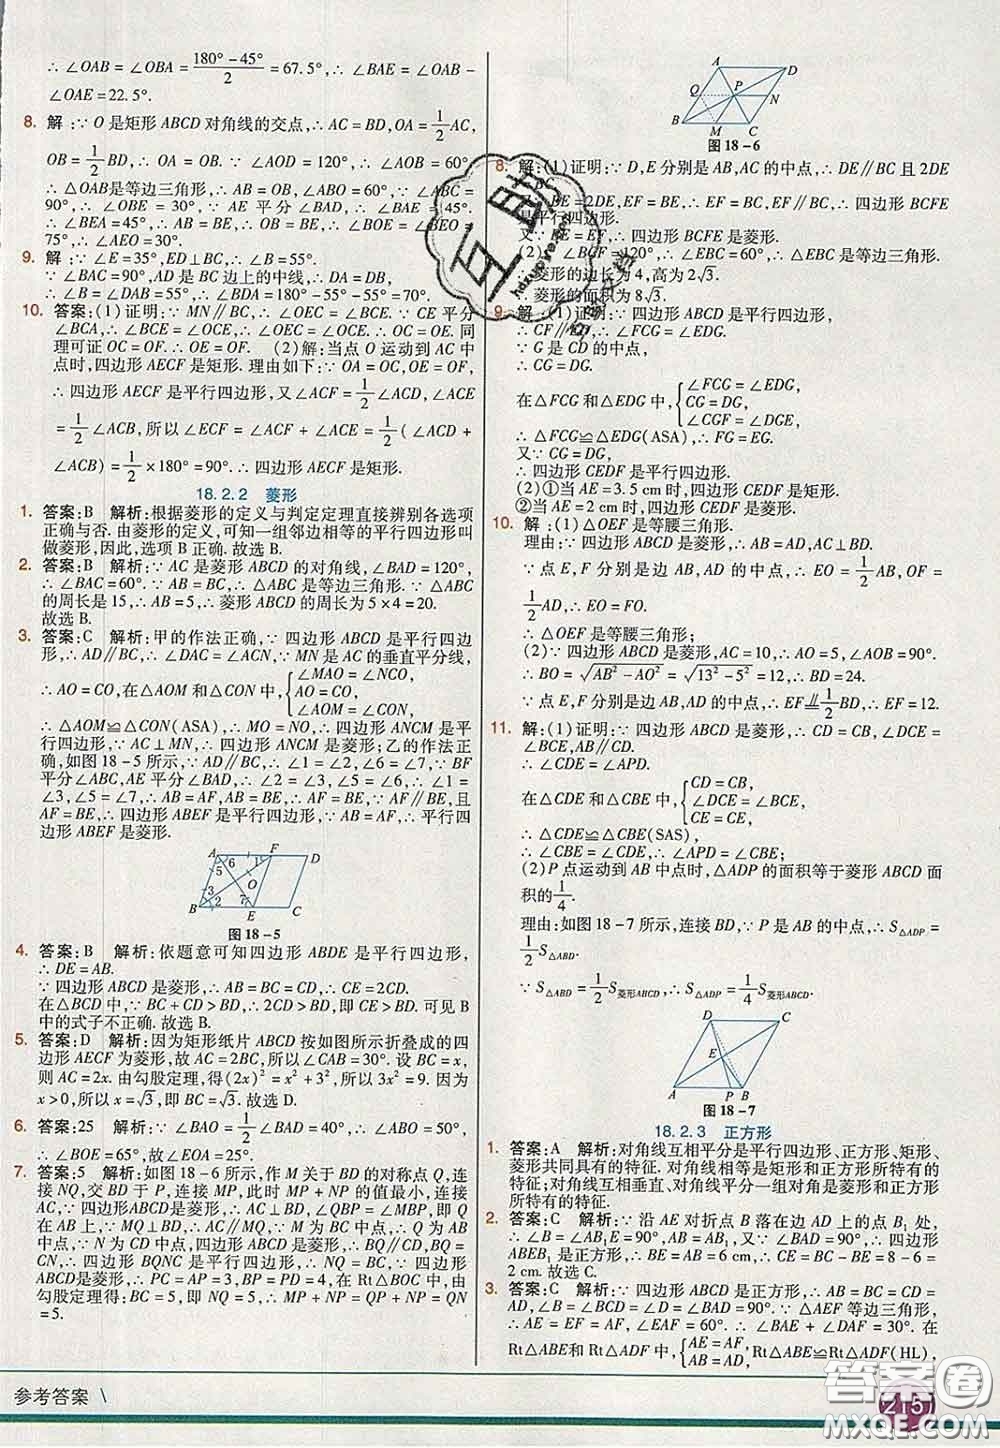 ∴ ∠OAB = ∠OBA = (180° - 45°)/2 = 67.5°, ∴ ∠BAE = ∠OAB -
∠OAE = 22.5°.
8. 解:∵ O 是矩形 ABCD 对角线的交点,∴ AC = BD,OA = 1/2 AC,
OB = 1/2 BD,∴ OA = OB. ∵ ∠AOD = 120°,∴ ∠AOB = 60°
∴ △OAB 是等边三角形,∴ AB = OB,∠ABO = 60°. ∵ ∠ABC =
90°,∴ ∠OBE = 30°. ∵ AE 平分 ∠BAD,∴ ∠BAE = 45°.
∴ ∠BEA = 45°,∴ AB = BE,∴ OB = BE,∴ ∠BOE = ∠BEO =
75°,∴ ∠AEO = 30°.
9. 解:∵ ∠E = 35°,ED⊥BC,∴ ∠B = 55°.
∵ ∠BAC = 90°,AD 是 BC 边上的中线,∴ DA = DB,
∴ ∠B = ∠DAB = 55°,∴ ∠BDA = 180° - 55° - 55° = 70°.
10. 答案:(1)证明:∵ MN∥BC,∴ ∠OEC = ∠BCE. ∵ CE 平分
∠BCA,∴ ∠BCE = ∠OCE,∴ ∠OEC = ∠OCE. ∴ OC = OE. 同
理可证 OC = OF. ∴ OE = OF. (2)解:当点 O 运动到 AC 中
点时,四边形 AECF 是矩形. 理由如下:∵ OA = OC,OE = OF,
∴ 四边形 AECF 是平行四边形,又∠ACF = 1/2 ∠ACD,∠ACE
= 1/2 ∠ACB,所以 ∠ECF = ∠ACF + ∠ACE = 1/2(∠ACD +
∠ACB) = 1/2 × 180° = 90°. ∴ 四边形 AECF 是矩形.
18.2.2 菱形
1. 答案:B 解析:根据菱形的定义与判定定理直接辨别各选项
正确与否. 由菱形的定义,可知一组邻边相等的平行四边形叫
做菱形,因此,选项 B 正确. 故选 B.
2. 答案:B 解析:∵ AC 是菱形 ABCD 的对角线,∠BAD = 120°,
∴ ∠BAC = 60°. ∵ AB = BC,∴ △ABC 是等边三角形. ∵ △ABC
的周长是 15,∴ AB = 5,∴ 菱形 ABCD 的周长为 5 × 4 = 20.
故选 B.
3. 答案:C 解析:甲的作法正确,∵ 四边形 ABCD 是平行四边
形,∴ AD∥BC,∴ ∠DAC = ∠ACN,∵ MN 是 AC 的垂直平分线,
∴ AO = CO,在△AOM 和△CON 中,{∠MAO = ∠NCO,
AO = CO,
∠AOM = ∠CON,
∴ △AOM≌△CON(ASA),∴ MO = NO,∴ 四边形 ANCM 是平
行四边形,∵ AC⊥MN,∴ 四边形 ANCM 是菱形;乙的作法正
确,如图 18-5 所示,∵ AD∥BC,∴ ∠1 = ∠2,∠6 = ∠7,∵ BF
平分∠ABC,AE 平分∠BAD,∴ ∠2 = ∠3,∠5 = ∠6,∴ ∠1 =
∠3,∠5 = ∠7,∴ AB = AF,AB = BE,∴ AF = BE,∵ AF∥BE,且
AF = BE,∴ 四边形 ABEF 是平行四边形,∵ AB = AF,∴ 平行四
边形 ABEF 是菱形.
A F D
6 1
5
O
3
2 7
B E C
图 18-5
4. 答案:B 解析:依题意可知四边形 ABDE 是平行四边形,
∴ DE = AB.
∵ 四边形 ABCD 是菱形,∴ AB = BC = CD,∴ CE = 2CD.
在△BCD 中,∵ BC + CD > BD,∴ 2CD > BD,即 CE > BD. 可见 B
中的式子不正确. 故选 B.
5. 答案:D 解析:因为矩形纸片 ABCD 按如图所示折叠成的四
边形 AECF 为菱形,故 AC = 2BC,所以 ∠CAB = 30°. 设 BC = x,
则 AC = 2x. 由勾股定理,得 (2x)² = x² + 3²,所以 3x² = 9. 因为
x > 0,所以 x = √3,即 BC = √3. 故选 D.
6. 答案:25 解析:∵ ∠BAO = 1/2 ∠DAB = 40°,∠AOB = 90°,
∴ ∠BOE = 65°,故∠EOA = 25°.
7. 答案:5 解析:如图 18-6 所示,作 M 关于 BD 的对称点 Q,连
接 NQ,交 BD 于 P,连接 MP,此时 MP + NP 的值最小,连接
AC,∵ 四边形ABCD是菱形,∴ AC⊥BD,∠QBP = ∠MBP,即点 Q
在 AB 上,∵ MQ⊥BD,∴ AC∥MQ,∵ M 为 BC 中点,∴ Q 为 AB
中点,∵ N 为 CD 中点,四边形ABCD是菱形,∴ BQ∥CD,BQ =
CN,∴ 四边形 BQNC 是平行四边形,∴ NQ = BC,∵ 四边形
ABCD是菱形,∴ PC = AP = 3,BP = PD = 4,在 Rt△BOC 中,由
勾股定理得:BC = 5,即 NQ = 5,∴ MP + NP = QP + NP = QN
= 5.
A D
Q P N
B M C
图 18-6
8. 解:(1)证明:∵ D,E 分别是 AB,AC 的中点,∴ DE∥BC 且 2DE
= BC.
∵ BE = 2DE,EF = BE,∴ EF = BC,EF∥BC,∴ 四边形 BCFE
是平行四边形.
又∵ BE = EF,∴ 四边形 BCFE 是菱形.
(2)∵ ∠BCF = 120°,∴ ∠EBC = 60°,∴ △EBC 是等边三角形.
∴ 菱形的边长为 4,高为 2√3.
∴ 菱形的面积为 8√3.
9. 解:(1)证明:∵ 四边形 ABCD 是平行四边形,
∴ CF∥ED,∴ ∠FCG = ∠EDG.
∵ G 是 CD 的中点,
∴ CG = DG.
在△FCG 和△EDG 中,{∠FCG = ∠EDG,
CG = DG,
∠CGF = ∠EDG,
∴ △FCG≌△EDG(ASA),∴ FG = EG.
又∵ CG = DG,
∴ 四边形 CEDF 是平行四边形.
(2)①当 AE = 3.5 cm 时,四边形 CEDF 是矩形.
②当 AE = 2 cm 时,四边形 CEDF 是菱形.
10. 解:(1)△OEF 是等腰三角形.
理由:∵ 四边形 ABCD 是菱形,∴ AB = AD,AC⊥BD.
∵ 点 E,F 分别是边 AB,AD 的中点,∴ EO = 1/2 AB,OF =
1/2 AD,∴ EO = FO.
∴ △OEF 是等腰三角形;
(2)∵ 四边形 ABCD 是菱形,AC = 10,∴ AO = 5,∠AOB = 90°.
∴ BO = √(AB² - AO²) = √(13² - 5²) = 12,∴ BD = 24.
∵ 点 E,F 分别是边 AB,AD 的中点,∴ EF∥1/2 BD,∴ EF = 12.
11. 解:(1)证明:∵ 四边形 ABCD 是菱形,∴ CD = CB,∠DCE =
∠BCE,AB∥CD.
∴ ∠CDE = ∠APD.
在△CDE 和△CBE 中,{CD = CB,
∠DCE = ∠BCE,
CE = CE,
∴ △CDE≌△CBE(SAS),
∴ ∠CBE = ∠CDE,∴ ∠APD = ∠CBE;
(2)P 点运动到 AB 中点时,△ADP 的面积等于菱形 ABCD 面
积的 1/4.
理由:如图 18-7 所示,连接 BD,∵ P 是 AB 的中点,∴ S△ADP =
1/2 S△ABD.
∵ S△ABD = 1/2 S菱形ABCD,∴ S△ADP = 1/4 S菱形ABCD.
D C
E
A P B
图 18-7
18.2.3 正方形
1. 答案:A 解析:对角线互相平分是平行四边形、正方形、矩形、
菱形共同具有的特征. 对角线相等是矩形和正方形所特有的特
征. 对角线互相垂直、对角线平分一组对角是菱形和正方形
所特有的特征.
2. 答案:C 解析:∵ 沿 AE 对折点 B 落在边 AD 上的点 B₁ 处,
∴ ∠B = ∠AB₁E = 90°,AB = AB₁,又∵ ∠BAD = 90°,∴ 四边形
ABEB₁ 是正方形,∴ BE = AB = 6 cm,∴ CE = BC - BE = 8 - 6 =
2 cm. 故选 C.
3. 答案:C 解析:∵ 四边形 ABCD 是正方形,∴ AB = BC = CD =
AD,∴ ∠B = ∠BCD = ∠D = ∠BAD = 90°. ∵ △AEF 等边三角形,
∴ AE = EF = AF,∠EAF = 60°. ∴ ∠BAE + ∠DAF = 30°. 在
Rt△ABE 和 Rt△ADF 中,{AE = AF,
AB = AD,
Rt△ABE≌Rt△ADF(HL),
参考答案 \
215
互助
hdzuoye.com
答案圈
MXQE.COM